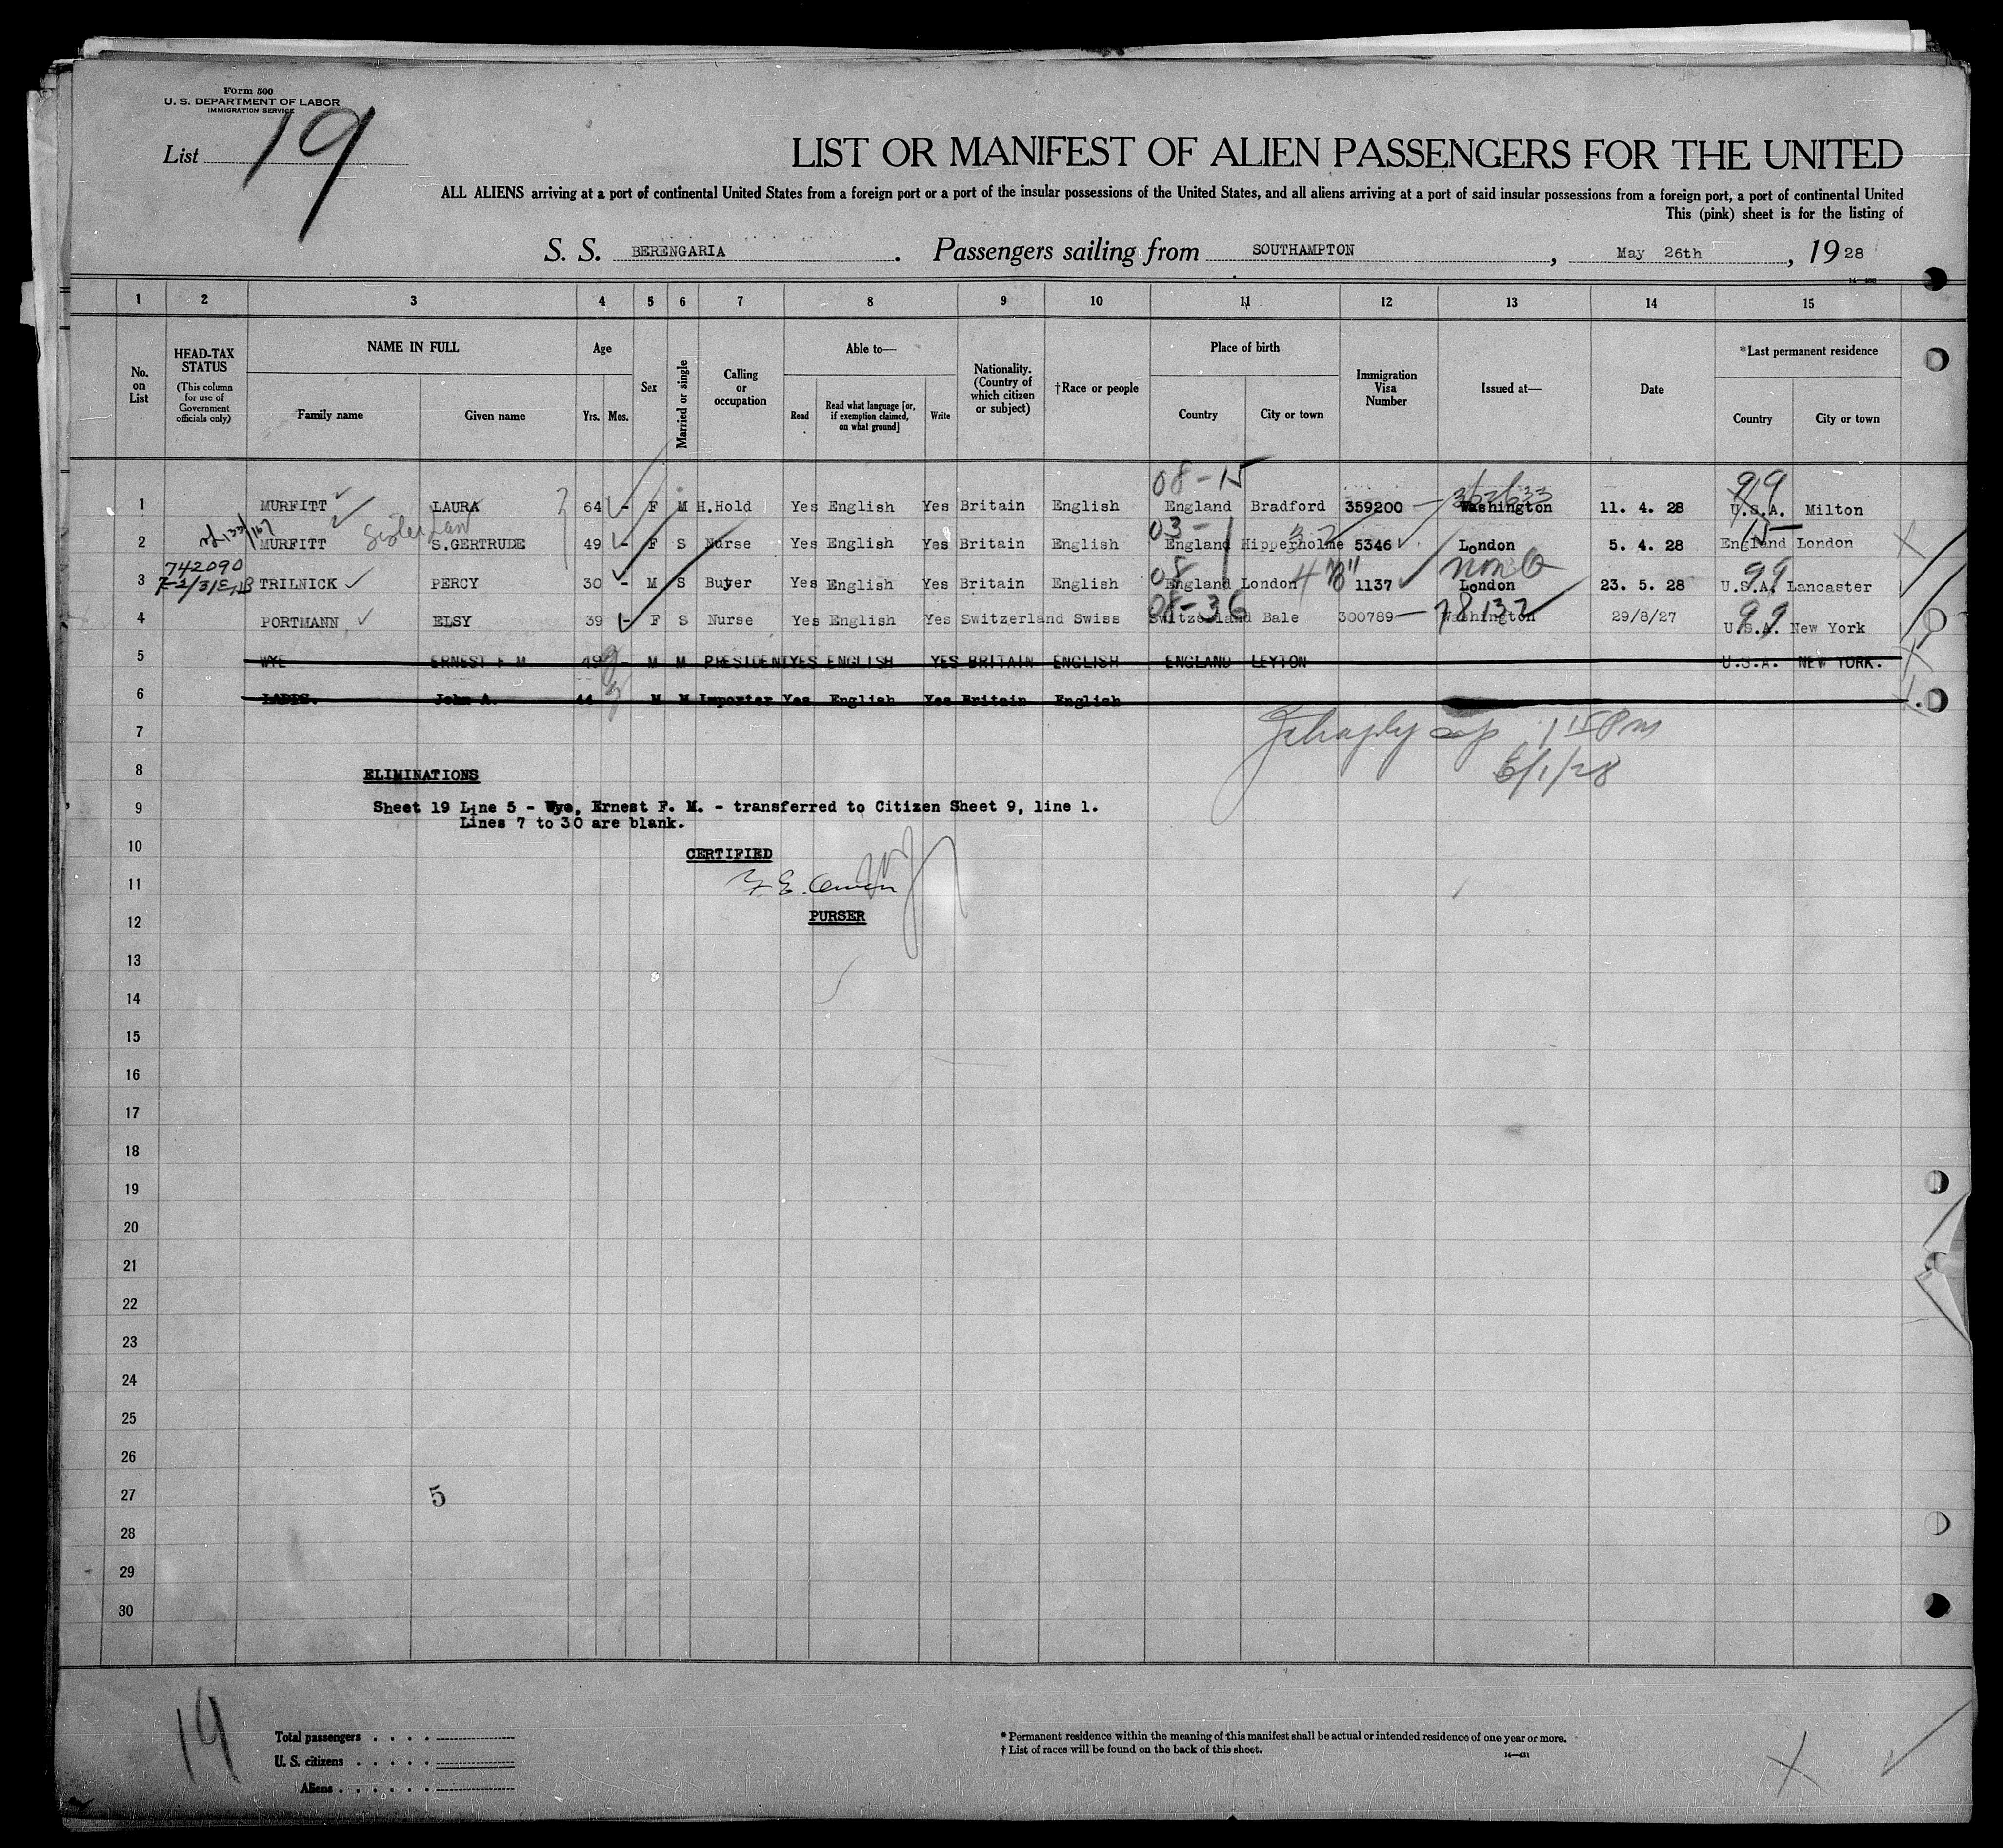 Form 500
U. S. DEPARTMENT OF LABOR
IMMIGRATION SERVICE
List 19
LIST OR MANIFEST OF ALIEN PASSENGERS FOR THE UNITED
ALL ALIENS arriving at a port of continental United States from a foreign port or a port of the insular possessions of the United States, and all aliens arriving at a port of said insular possessions from a foreign port, a port of continental United
This (pink) sheet is for the listing of
S. S. BERENGARIA . Passengers sailing from SOUTHAMPTON , May 26th , 1928
14-430
1 2 3 4 5 6 7 8 9 10 11 12 13 14 15
No. on List
HEAD-TAX STATUS
(This column for use of Government officials only)
NAME IN FULL
Family name Given name
Age
Yrs. Mos.
Sex
Married or single
Calling or occupation
Able to—
Read
Read what language [or, if exemption claimed, on what ground]
Write
Nationality. (Country of which citizen or subject)
†Race or people
Place of birth
Country City or town
Immigration Visa Number
Issued at—
Date
*Last permanent residence
Country City or town
08-15 362633 99
1 MURFITT LAURA 64 - F M H.Hold Yes English Yes Britain English England Bradford 359200 Washington 11. 4. 28 U.S.A. Milton
Sister 03- 15
2 MURFITT S.GERTRUDE 49 - F S Nurse Yes English Yes Britain English England Hipperholme 5346 London 5. 4. 28 England London
742090 08 non Q 99
3 TRILNICK PERCY 30 - M S Buyer Yes English Yes Britain English England London 4 "B" 1137 London 23. 5. 28 U.S.A. Lancaster
08-36 78132 99
4 PORTMANN ELSY 39 - F S Nurse Yes English Yes Switzerland Swiss Switzerland Bale 300789 Washington 29/8/27 U.S.A. New York
5 WYE ERNEST F M 49 - M M PRESIDENT YES ENGLISH YES BRITAIN ENGLISH ENGLAND LEYTON U.S.A. NEW YORK.
6 John A. 44 M M Importer Yes English Yes Britain English
7 1 15 PM
8 6/1/28
ELIMINATIONS
9 Sheet 19 Line 5 - Wye, Ernest F. M. - transferred to Citizen Sheet 9, line 1.
Lines 7 to 30 are blank.
10 CERTIFIED
11
12 PURSER
13
14
15
16
17
18
19
20
21
22
23
24
25
26
27 5
28
29
30
19
Total passengers
U. S. citizens
Aliens
* Permanent residence within the meaning of this manifest shall be actual or intended residence of one year or more.
† List of races will be found on the back of this sheet.
14-431